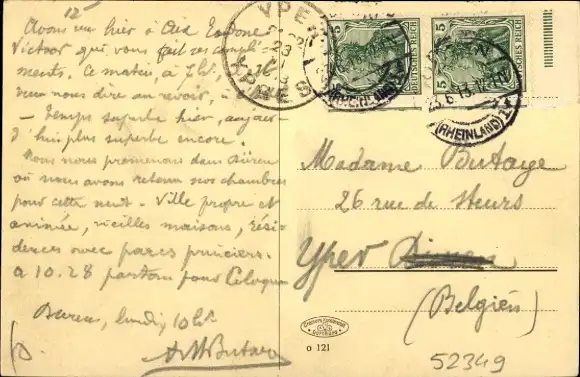 12
Avons vu hier à Aix Edmond
Victoor qui vous fait ses compli-
ments. Ce matin, à 7 h½,
venu nous dire au revoir.
— Temps superbe hier, aujour-
d'hui plus superbe encore.
Nous nous promenons dans Düren
où nous avons retenu nos chambres
pour cette nuit. Ville propre et
animée, vieilles maisons, rési-
dences avec parcs princiers.
à 10.28 partons pour Cologne
Düren, lundi, 10 h
YPER
YPRES
5
DEUTSCHES REICH
5
DEUTSCHES REICH
(RHEINLAND)
23.6.13
(RHEINLAND)
Madame Butaye
26 rue de
Yper
(Belgien)
o 121
52349